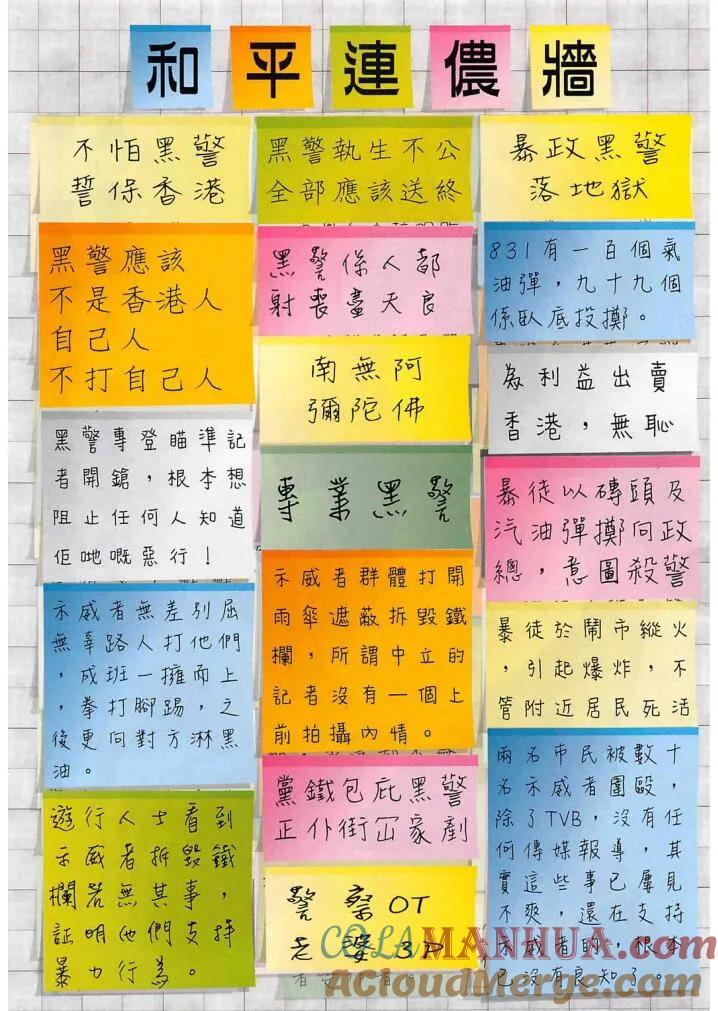 和平連儂牆
不怕黑警
誓保香港
黑警應該
不是香港人
自己人
不打自己人
黑警專登瞄準記
者開鎗，根本想
阻止任何人知道
佢哋嘅惡行！
示威者無差別屈
無辜路人打他們
，成班一擁而上
，拳打腳踢，之
後更向對方淋黑
油。
遊行人士看到
示威者拆毀鐵
欄若無其事，
証明他們支持
暴力行為。
黑警執生不公
全部應該送終
黑警係人都
射喪盡天良
南無阿
彌陀佛
專業黑警
示威者群體打開
雨傘遮蔽拆毀鐵
欄，所謂中立的
記者沒有一個上
前拍攝內情。
黨鐵包庇黑警
正仆街冚家剷
警察OT
老婆3P
暴政黑警
落地獄
831有一百個氣
油彈，九十九個
係臥底投擲。
為利益出賣
香港，無恥
暴徒以磚頭及
汽油彈擲向政
總，意圖殺警
暴徒於鬧市縱火
，引起爆炸，不
管附近居民死活
兩名市民被數十
名示威者圍毆，
除了TVB，沒有任
何傳媒報導，其
實這些事已屢見
不爽，還在支持
示威者的，根本
已沒有良知了。
COLAMANHUA.COM
ACloudMerge.com